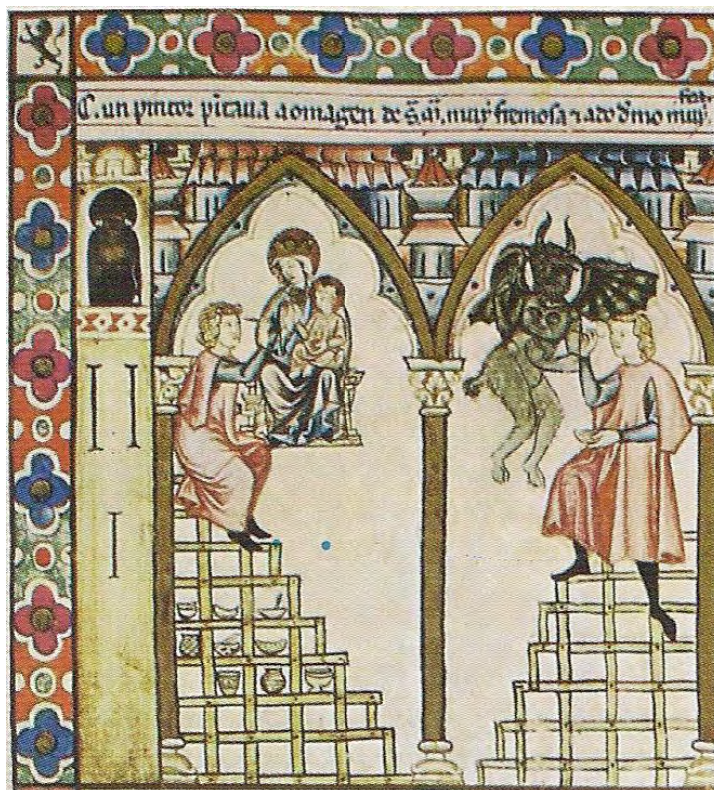 C. un pintor pĩtaua aomagen de S̃. M̃. muy fremosa ⁊ ado d̓mo muy fea.